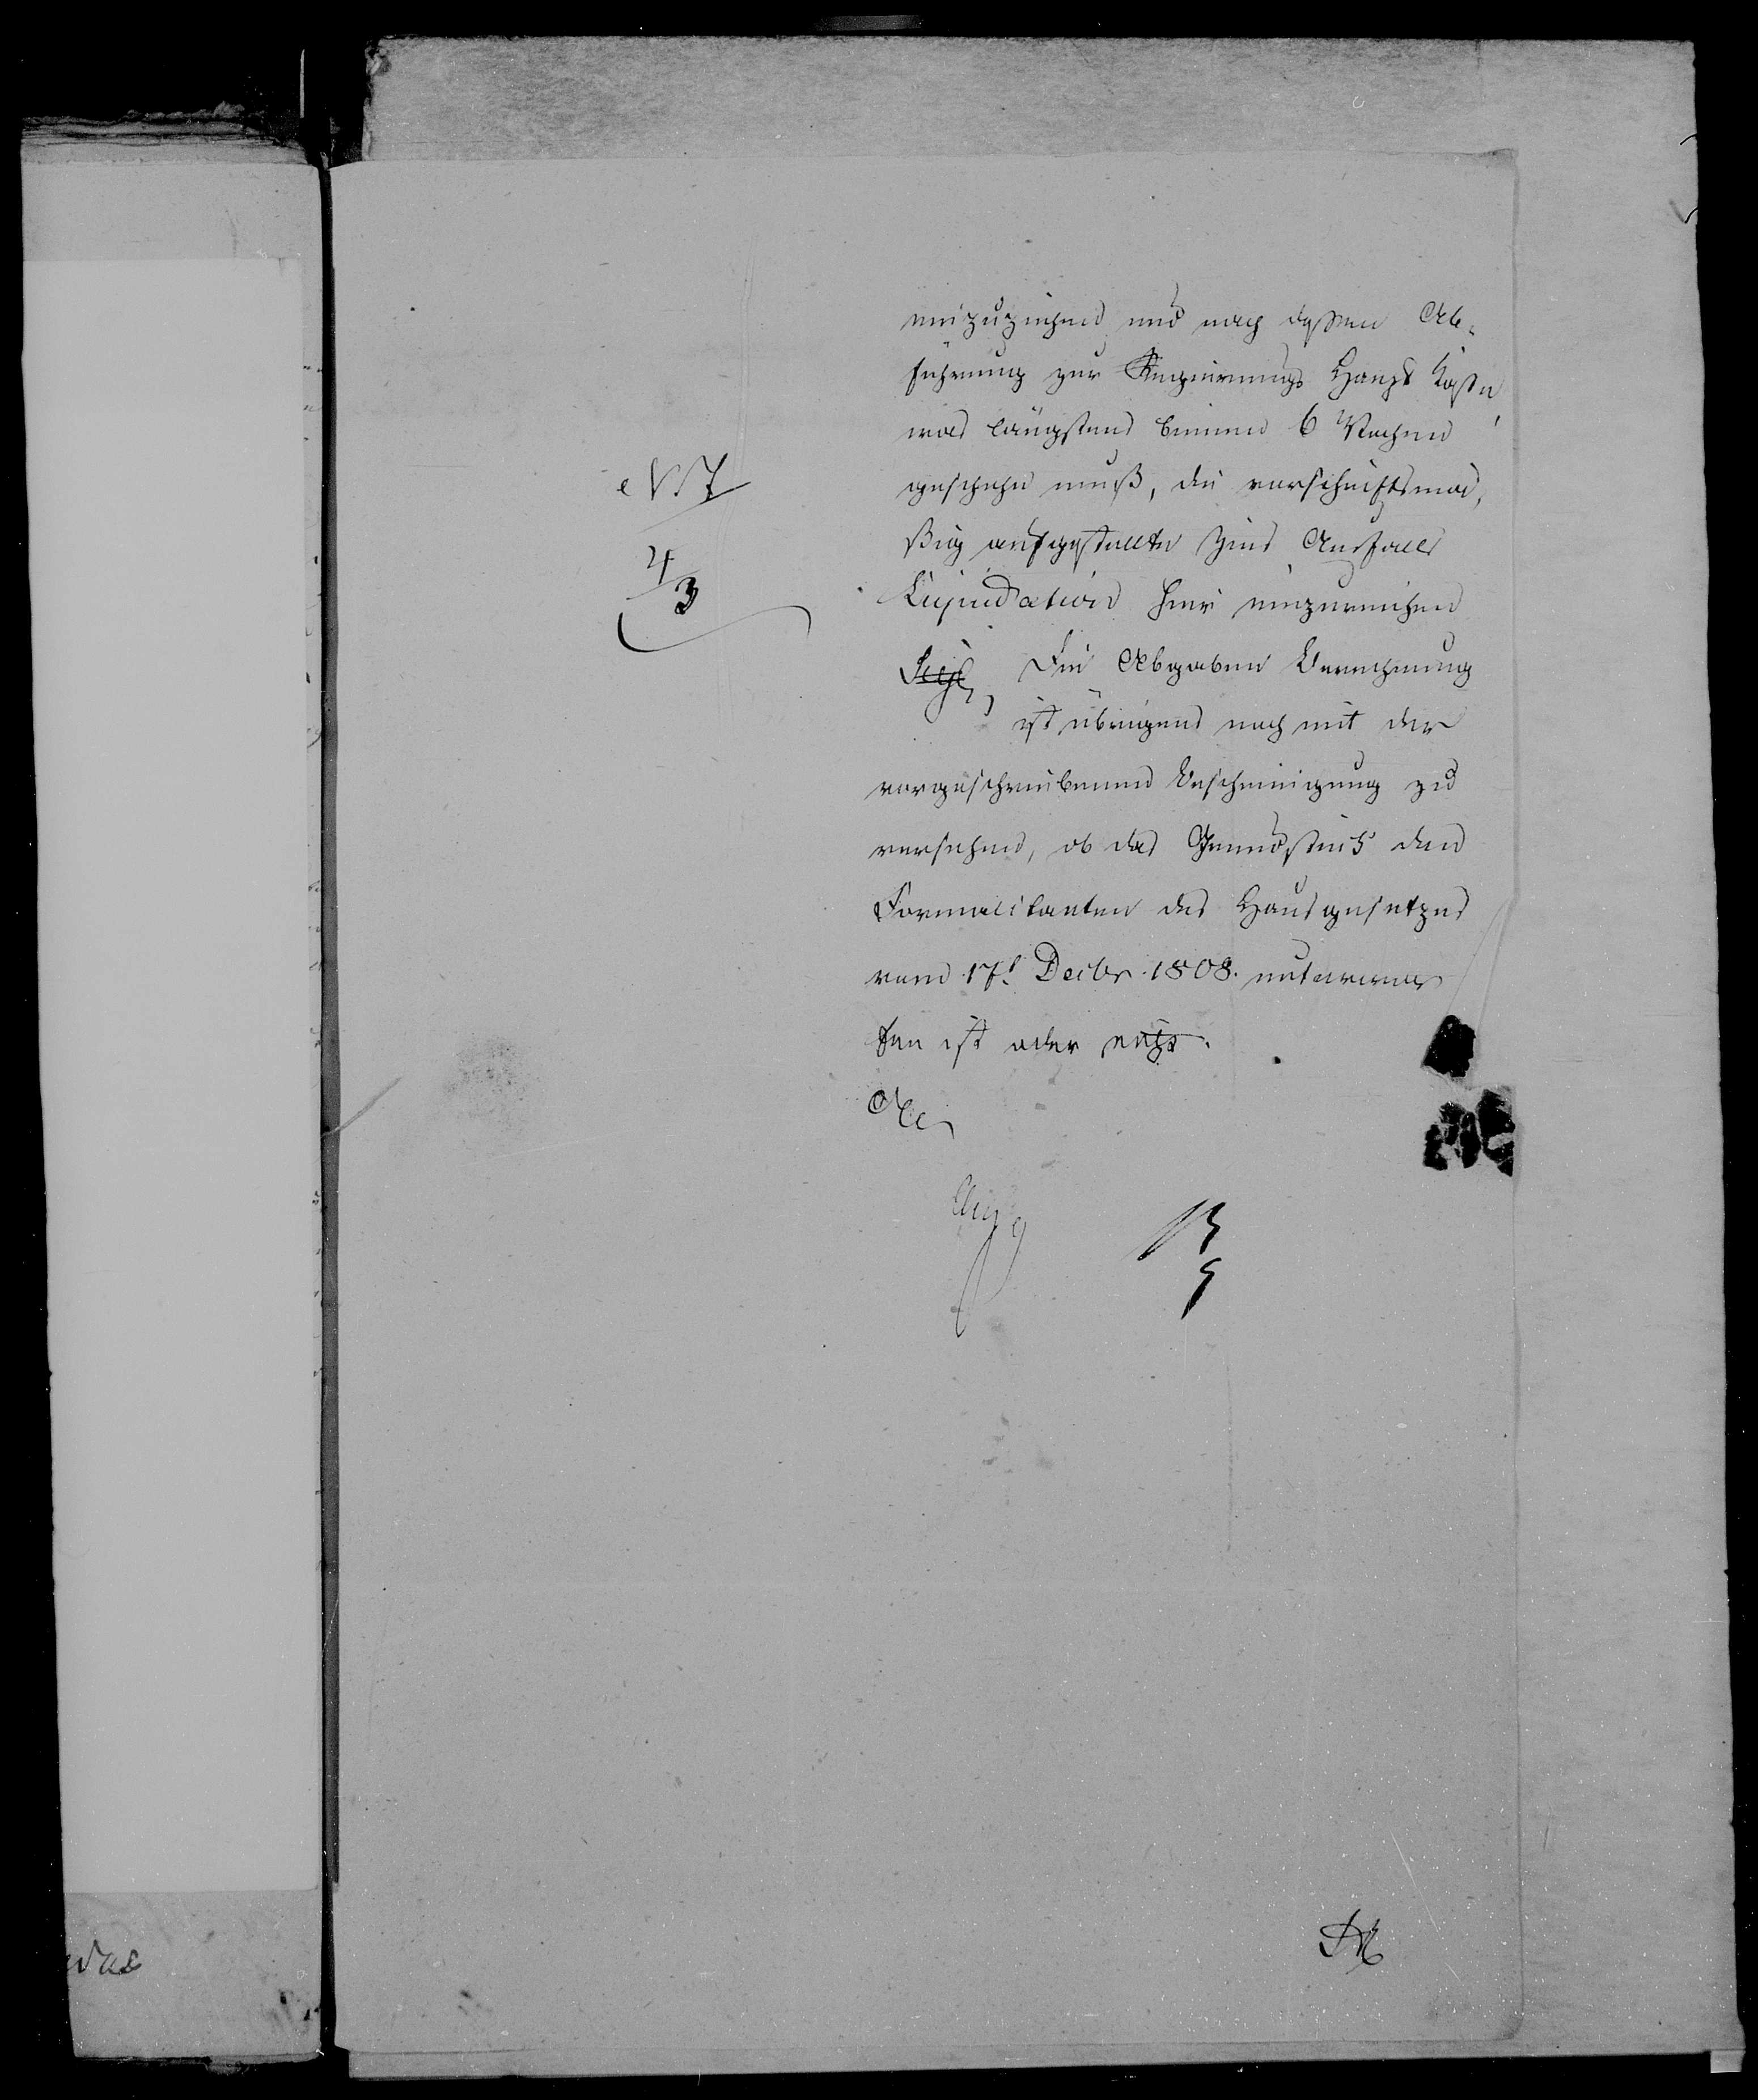 einzuziehen und nach dessen Ab-
führung zur Regierungs Haupt Kasse,
was längstens binnen 6 Wochen
geschehn muß, die vorschriftsmä-
ßig aufgestellte Zins Ausfalls
Liquidation hier einzureichen
Die Abgaben Berechnung
ist übrigens noch mit der
vorgeschriebenen Bescheinigung zu
versehen, ob das Grundstück den
Formalitaeten des Hausgesetzes
vom 17t Decbr 1808. unterwor
fen ist oder nicht.
4/3